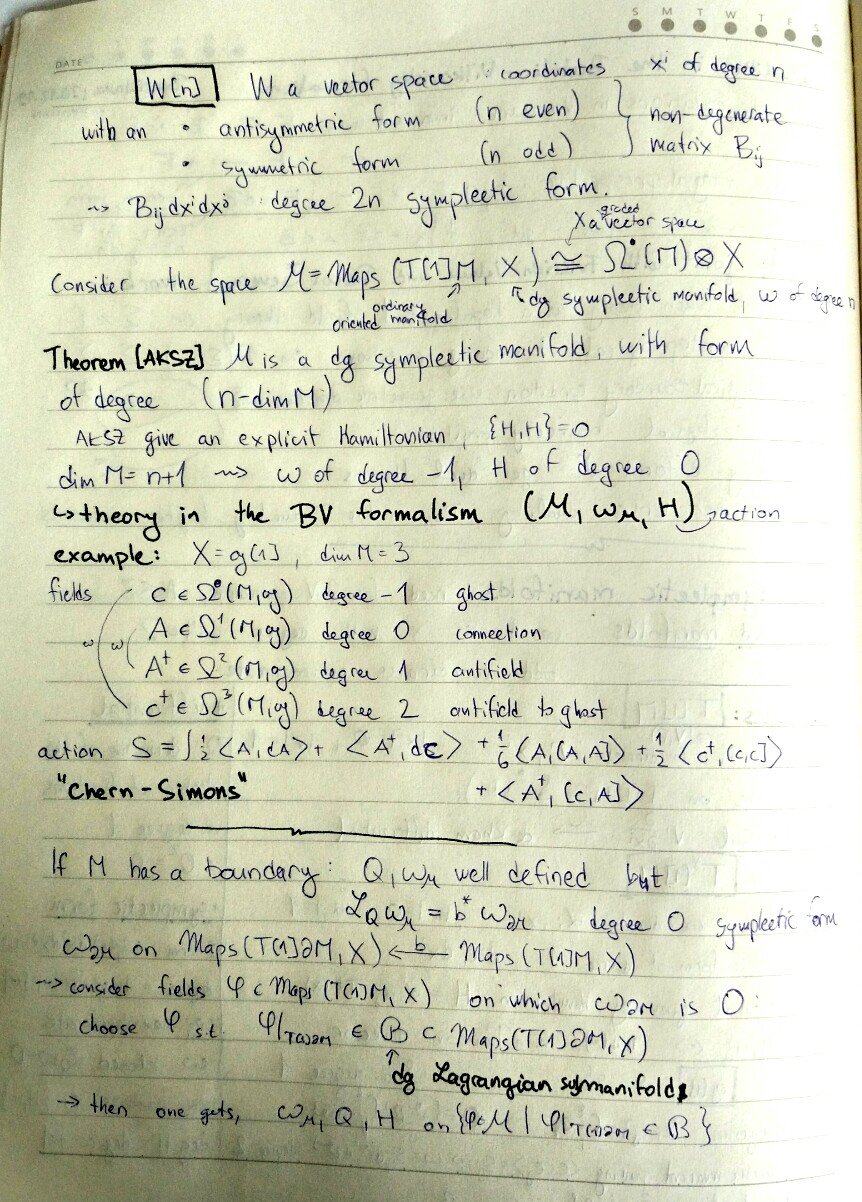 S M T W T F S
DATE
W[n] W a vector space : coordinates xⁱ of degree n
with an • antisymmetric form (n even) } non-degenerate
• symmetric form (n odd) } matrix B_ij
~> B_ij dxⁱdxʲ degree 2n symplectic form.
X a graded vector space
Consider the space ℳ = Maps (T[1]M, X) ≅ Ω•(M) ⊗ X
ordinary oriented manifold
dg symplectic manifold, ω of degree n
Theorem [AKSZ] ℳ is a dg symplectic manifold, with form
of degree (n-dim M)
AKSZ give an explicit Hamiltonian, {H,H}=0
dim M = n+1 ~> ω of degree -1, H of degree 0
↳ theory in the BV formalism (ℳ, ω_ℳ, H) → action
example: X = g[1], dim M = 3
fields c ∈ Ω⁰(M,g) degree -1 ghost
ω ω A ∈ Ω¹(M,g) degree 0 connection
A⁺ ∈ Ω²(M,g) degree 1 antifield
c⁺ ∈ Ω³(M,g) degree 2 antifield to ghost
action S = ∫ ½ <A,dA> + <A⁺,dc> + 1/6 <A,[A,A]> + ½ <c⁺,[c,c]>
"Chern-Simons" + <A⁺,[c,A]>
If M has a boundary: Q, ω_ℳ well defined but
ℒ_Q ω_ℳ = b* ω_∂M degree 0 symplectic form
ω_∂M on Maps(T[1]∂M, X) ←b— Maps(T[1]M, X)
~> consider fields φ ⊂ Maps(T[1]M, X) on which ω_∂M is 0:
choose φ s.t. φ|_T[1]∂M ∈ B ⊂ Maps(T[1]∂M, X)
↑ dg Lagrangian submanifold
~> then one gets, ω_ℳ, Q, H on {φ∈ℳ | φ|_T[1]∂M ∈ B}